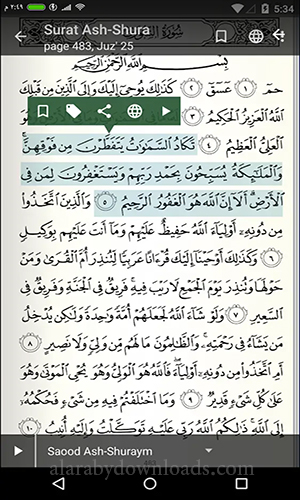 م ٢:٤٩
5:34
Surat Ash-Shura
page 483, Juz' 25
بِسْمِ ٱللَّهِ ٱلرَّحْمَٰنِ ٱلرَّحِيمِ
حمٓ ١ عٓسٓقٓ ٢ كَذَٰلِكَ يُوحِىٓ إِلَيْكَ وَإِلَى ٱلَّذِينَ مِن قَبْلِكَ
ٱللَّهُ ٱلْعَزِيزُ ٱلْحَكِيمُ
ٱلْعَلِىُّ ٱلْعَظِيمُ ٤ تَكَادُ ٱلسَّمَٰوَٰتُ يَتَفَطَّرْنَ مِن فَوْقِهِنَّ ۚ
وَٱلْمَلَٰٓئِكَةُ يُسَبِّحُونَ بِحَمْدِ رَبِّهِمْ وَيَسْتَغْفِرُونَ لِمَن فِى
ٱلْأَرْضِ ۗ أَلَآ إِنَّ ٱللَّهَ هُوَ ٱلْغَفُورُ ٱلرَّحِيمُ ٥ وَٱلَّذِينَ ٱتَّخَذُوا۟
مِن دُونِهِۦٓ أَوْلِيَآءَ ٱللَّهُ حَفِيظٌ عَلَيْهِمْ وَمَآ أَنتَ عَلَيْهِم بِوَكِيلٍ
٦ وَكَذَٰلِكَ أَوْحَيْنَآ إِلَيْكَ قُرْءَانًا عَرَبِيًّا لِّتُنذِرَ أُمَّ ٱلْقُرَىٰ وَمَنْ
حَوْلَهَا وَتُنذِرَ يَوْمَ ٱلْجَمْعِ لَا رَيْبَ فِيهِ ۚ فَرِيقٌ فِى ٱلْجَنَّةِ وَفَرِيقٌ فِى
ٱلسَّعِيرِ ٧ وَلَوْ شَآءَ ٱللَّهُ لَجَعَلَهُمْ أُمَّةً وَٰحِدَةً وَلَٰكِن يُدْخِلُ
مَن يَشَآءُ فِى رَحْمَتِهِۦ ۚ وَٱلظَّٰلِمُونَ مَا لَهُم مِّن وَلِىٍّ وَلَا نَصِيرٍ
٨ أَمِ ٱتَّخَذُوا۟ مِن دُونِهِۦٓ أَوْلِيَآءَ ۖ فَٱللَّهُ هُوَ ٱلْوَلِىُّ وَهُوَ يُحْىِ ٱلْمَوْتَىٰ وَهُوَ
عَلَىٰ كُلِّ شَىْءٍ قَدِيرٌ ٩ وَمَا ٱخْتَلَفْتُمْ فِيهِ مِن شَىْءٍ فَحُكْمُهُۥٓ
إِلَى ٱللَّهِ ۚ ذَٰلِكُمُ ٱللَّهُ رَبِّى عَلَيْهِ تَوَكَّلْتُ وَإِلَيْهِ أُنِيبُ ١٠
Saood Ash-Shuraym
alarabydownloads.com